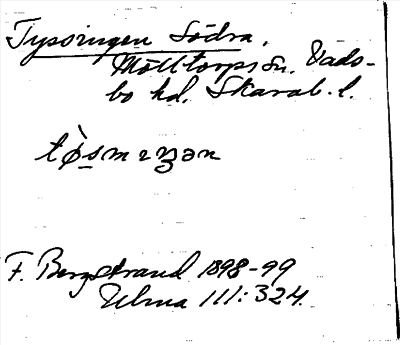 Tyssingen Södra.
Mölltorps sn. Vads-
bo hd. Skarab. l.
F. Bergstrand 1898-99
Ulma 111:324.